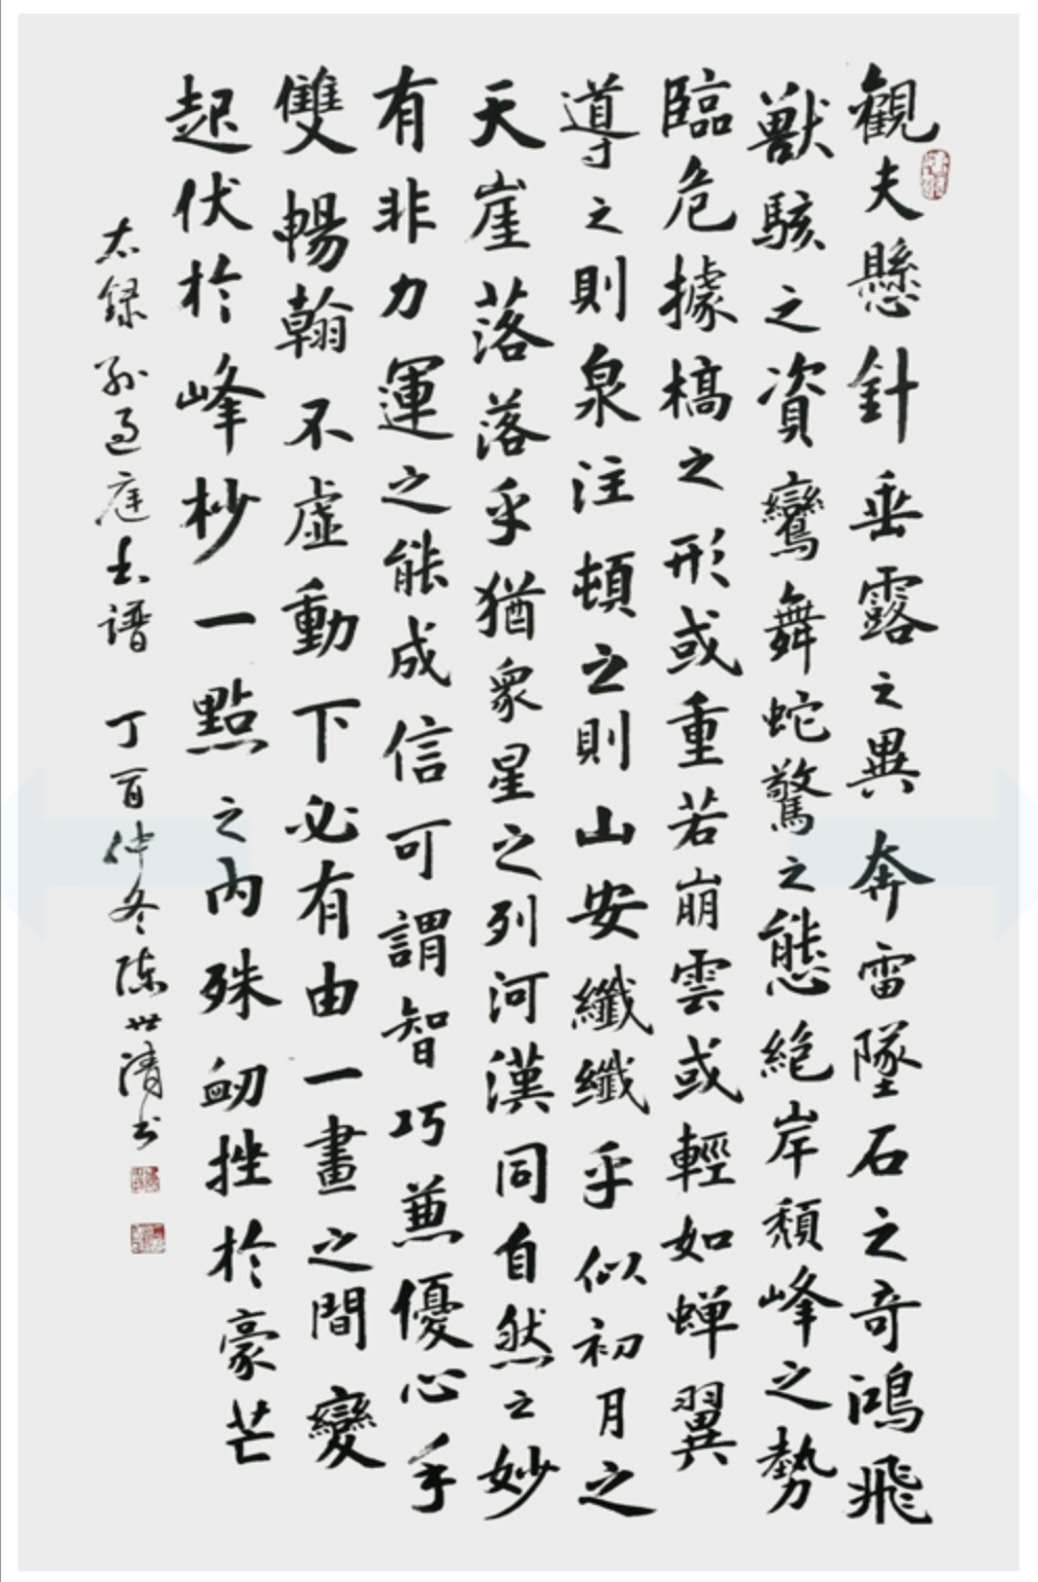 觀夫懸針垂露之異奔雷墜石之奇鴻飛
獸駭之資鸞舞蛇驚之態絕岸頹峰之勢
臨危據槁之形或重若崩雲或輕如蟬翼
導之則泉注頓之則山安纖纖乎似初月之
天崖落落乎猶衆星之列河漢同自然之妙
有非力運之能成信可謂智巧兼優心手
雙暢翰不虛動下必有由一畫之間變
起伏於峰杪一點之內殊衂挫於豪芒
右錄孫過庭書譜 丁酉仲冬陳世清書